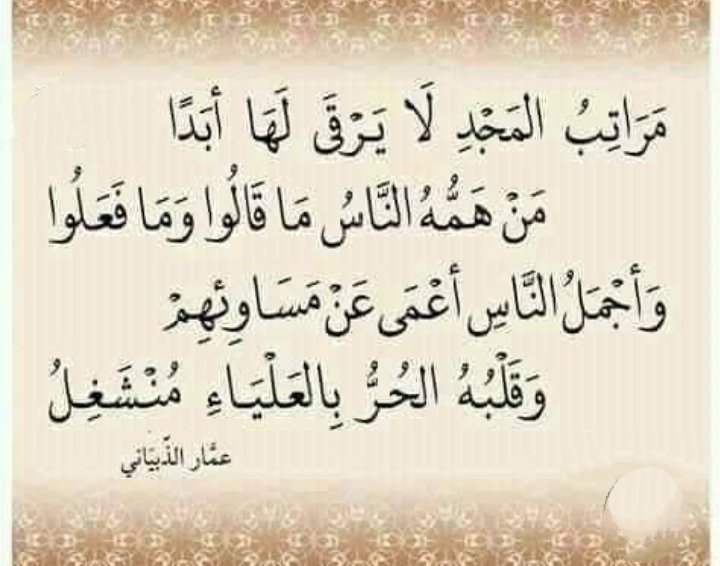 مَرَاتِبُ المَجْدِ لَا يَرْقَى لَهَا أبَدًا
مَنْ هَمُّهُ النَّاسُ مَا قَالُوا وَمَا فَعَلُوا
وَأجْمَلُ النَّاسِ أعْمَى عَنْ مَسَاوِئِهِمْ
وَقَلْبُهُ الحُرُّ بِالعَلْيَاءِ مُنْشَغِلُ
عمَّار الذّبيَاني